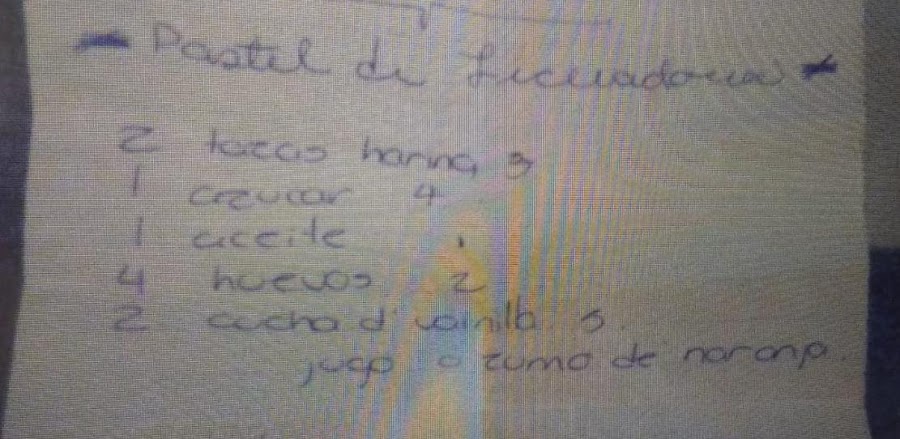 Pastel de Licuadora
2 tazas harina 3
1 azucar 4
1 aceite 1
4 huevos 2
2 cucha d' vainilla. 5.
jugo o zumo de naranja.